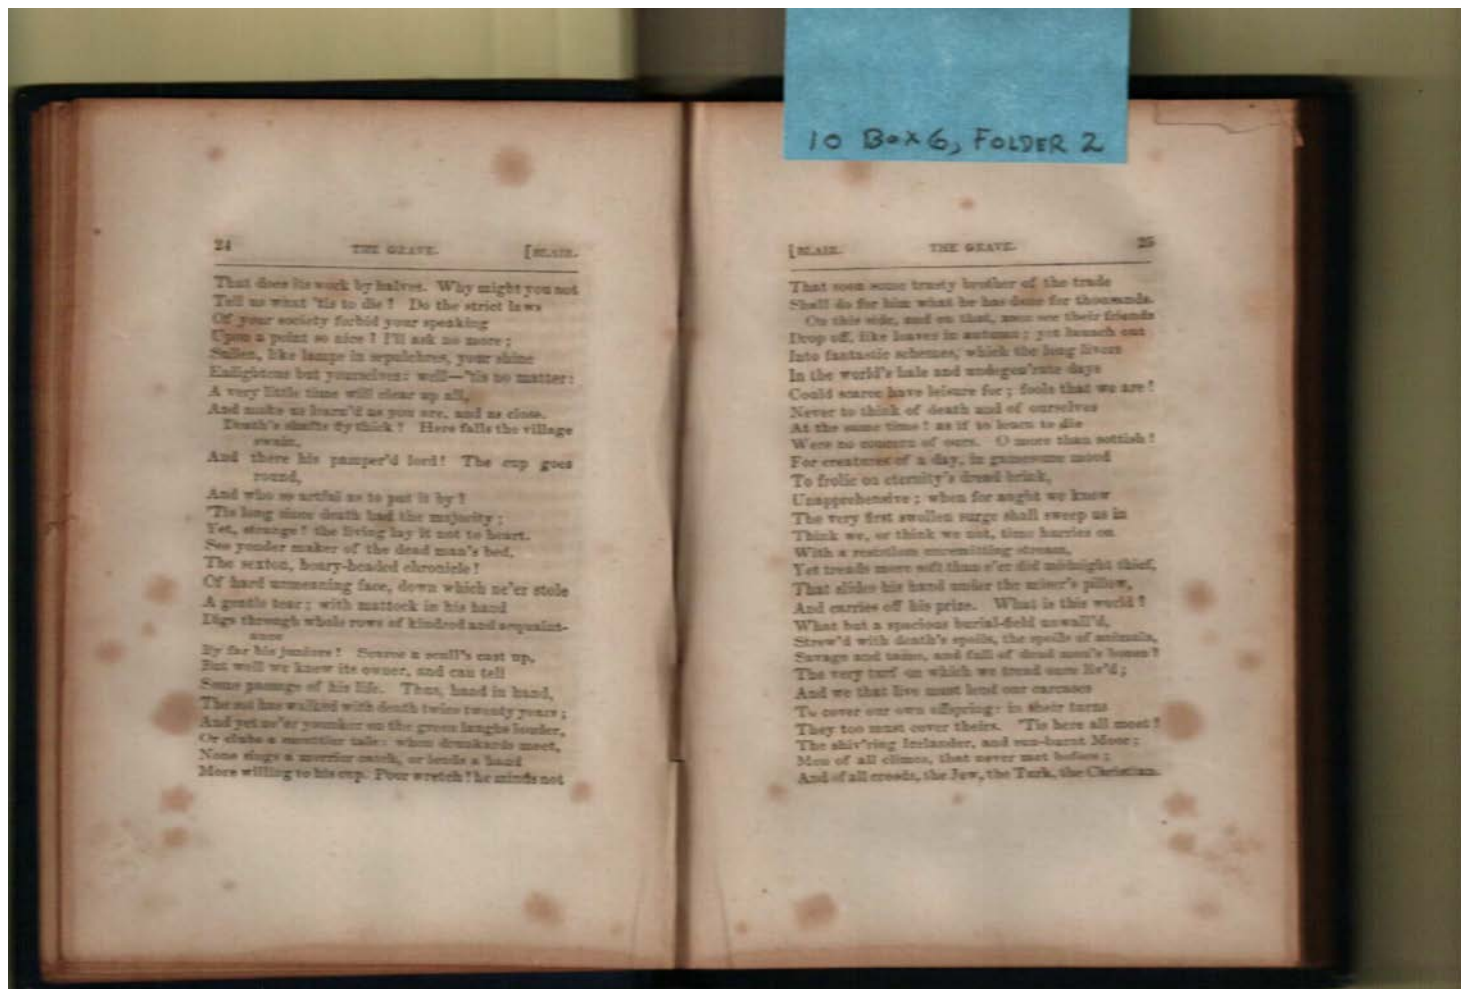 10 BOX 6, FOLDER 2
24 THE GRAVE. [BLAIR.
That does its work by halves. Why might you not
Tell us what 'tis to die? Do the strict laws
Of your society forbid your speaking
Upon a point so nice? I'll ask no more;
Sullen, like lamps in sepulchres, your shine
Enlightens but yourselves: well—'tis no matter:
A very little time will clear up all,
And make us learn'd as you are, and as close.
Death's shafts fly thick! Here falls the village
swain,
And there his pamper'd lord! The cup goes
round,
And who so artful as to put it by?
'Tis long since death had the majority;
Yet, strange! the living lay it not to heart.
See yonder maker of the dead man's bed,
The sexton, hoary-headed chronicle!
Of hard unmeaning face, down which ne'er stole
A gentle tear; with mattock in his hand
Digs through whole rows of kindred and acquaint-
ance
By far his juniors! Scarce a scull's cast up,
But well he knew its owner, and can tell
Some passage of his life. Thus, hand in hand,
The sot has walked with death twice twenty years;
And yet ne'er younker on the green laughs louder,
Or clubs a smuttier tale: when drunkards meet,
None sings a merrier catch, or lends a hand
More willing to his cup. Poor wretch! he minds not
[BLAIR. THE GRAVE. 25
That soon some trusty brother of the trade
Shall do for him what he has done for thousands.
On this side, and on that, men see their friends
Drop off, like leaves in autumn; yet launch out
Into fantastic schemes, which the long livers
In the world's hale and undegen'rate days
Could scarce have leisure for; fools that we are!
Never to think of death and of ourselves
At the same time! as if to learn to die
Were no concern of ours. O more than sottish!
For creatures of a day, in gamesome mood
To frolic on eternity's dread brink,
Unapprehensive; when for aught we know
The very first swollen surge shall sweep us in
Think we, or think we not, time hurries on
With a resistless unremitting stream,
Yet treads more soft than e'er did midnight thief,
That slides his hand under the miser's pillow,
And carries off his prize. What is this world?
What but a spacious burial-field unwall'd,
Strew'd with death's spoils, the spoils of animals,
Savage and tame, and full of dead men's bones?
The very turf on which we tread once liv'd;
And we that live must lend our carcases
To cover our own offspring: in their turns
They too must cover theirs. 'Tis here all meet!
The shiv'ring Icelander, and sun-burnt Moor;
Men of all climes, that never met before;
And of all creeds, the Jew, the Turk, the Christian.